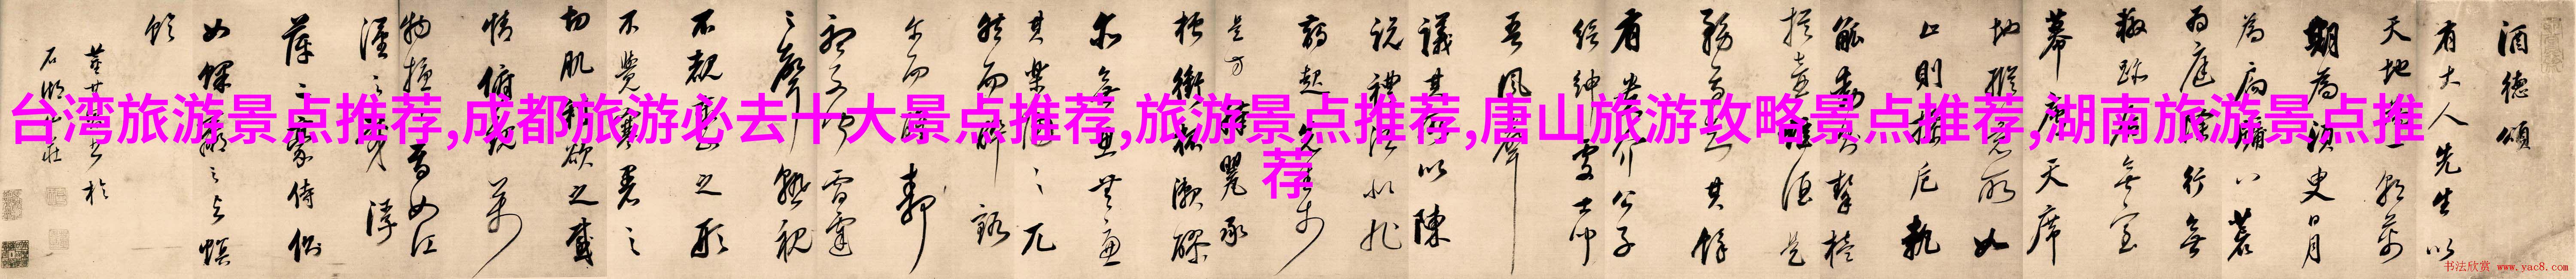 台湾旅游景点推荐,成都旅游必去十大景点推荐,旅游景点推荐,唐山旅游攻略景点推荐,湖南旅游景点推
荐
酒德頌
有大人先生以
天地為一朝萬
期為須臾日月
為扃牖八荒
為庭衢行無
轍跡居無室
幕天席
地縱意所如
止則操卮執
觚動則挈榼
提壺唯酒是
務焉知其餘
有貴介公子
縉紳處士聞
吾風聲
議其所以陳
說禮法是非
起先生於
是方捧罌承
槽銜杯漱醪
無思無慮
其樂陶陶兀
然而醉豁
爾而醒靜
聽不聞雷霆
之聲熟視
不覩泰山之形
不覺寒暑之
切肌利欲之感
情俯觀萬
物擾擾焉如江
漢之載浮
萍二豪侍側
如蜾蠃之與螟
蛉
董其昌書於
石湖山莊
书法欣赏 www.yac8.com